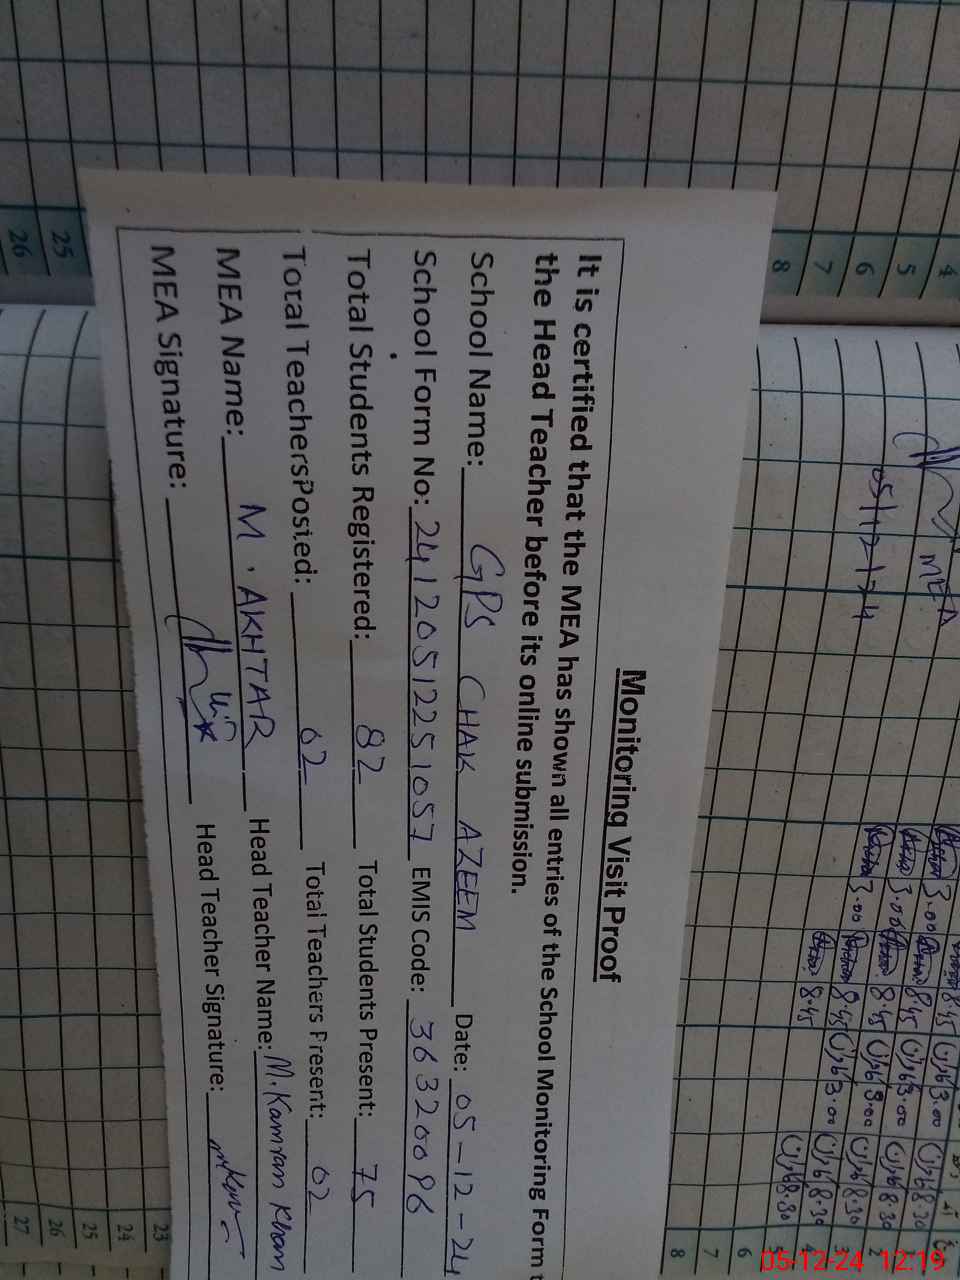 Monitoring Visit Proof
It is certified that the MEA has shown all entries of the School Monitoring Form t
the Head Teacher before its online submission.
School Name: GPS CHAK AZEEM Date: 05-12-24
School Form No: 241205122251057 EMIS Code: 36320096
Total Students Registered: 82 Total Students Present: 75
Total TeachersPosted: 02 Total Teachers Present: 02
MEA Name: M. AKHTAR Head Teacher Name: M. Kamran Khan
MEA Signature: Head Teacher Signature:
MEA
4
5
6
7
8
25
26
3.00 8.45 3.00 8.30
3.00 8.45 3.00 8.30
3.00 8.45 3.00 8.30
8.45 3.00 8.30
8.30
2
3
4
5
6
7
8
23
24
25
26
27
05-12-24 12:19